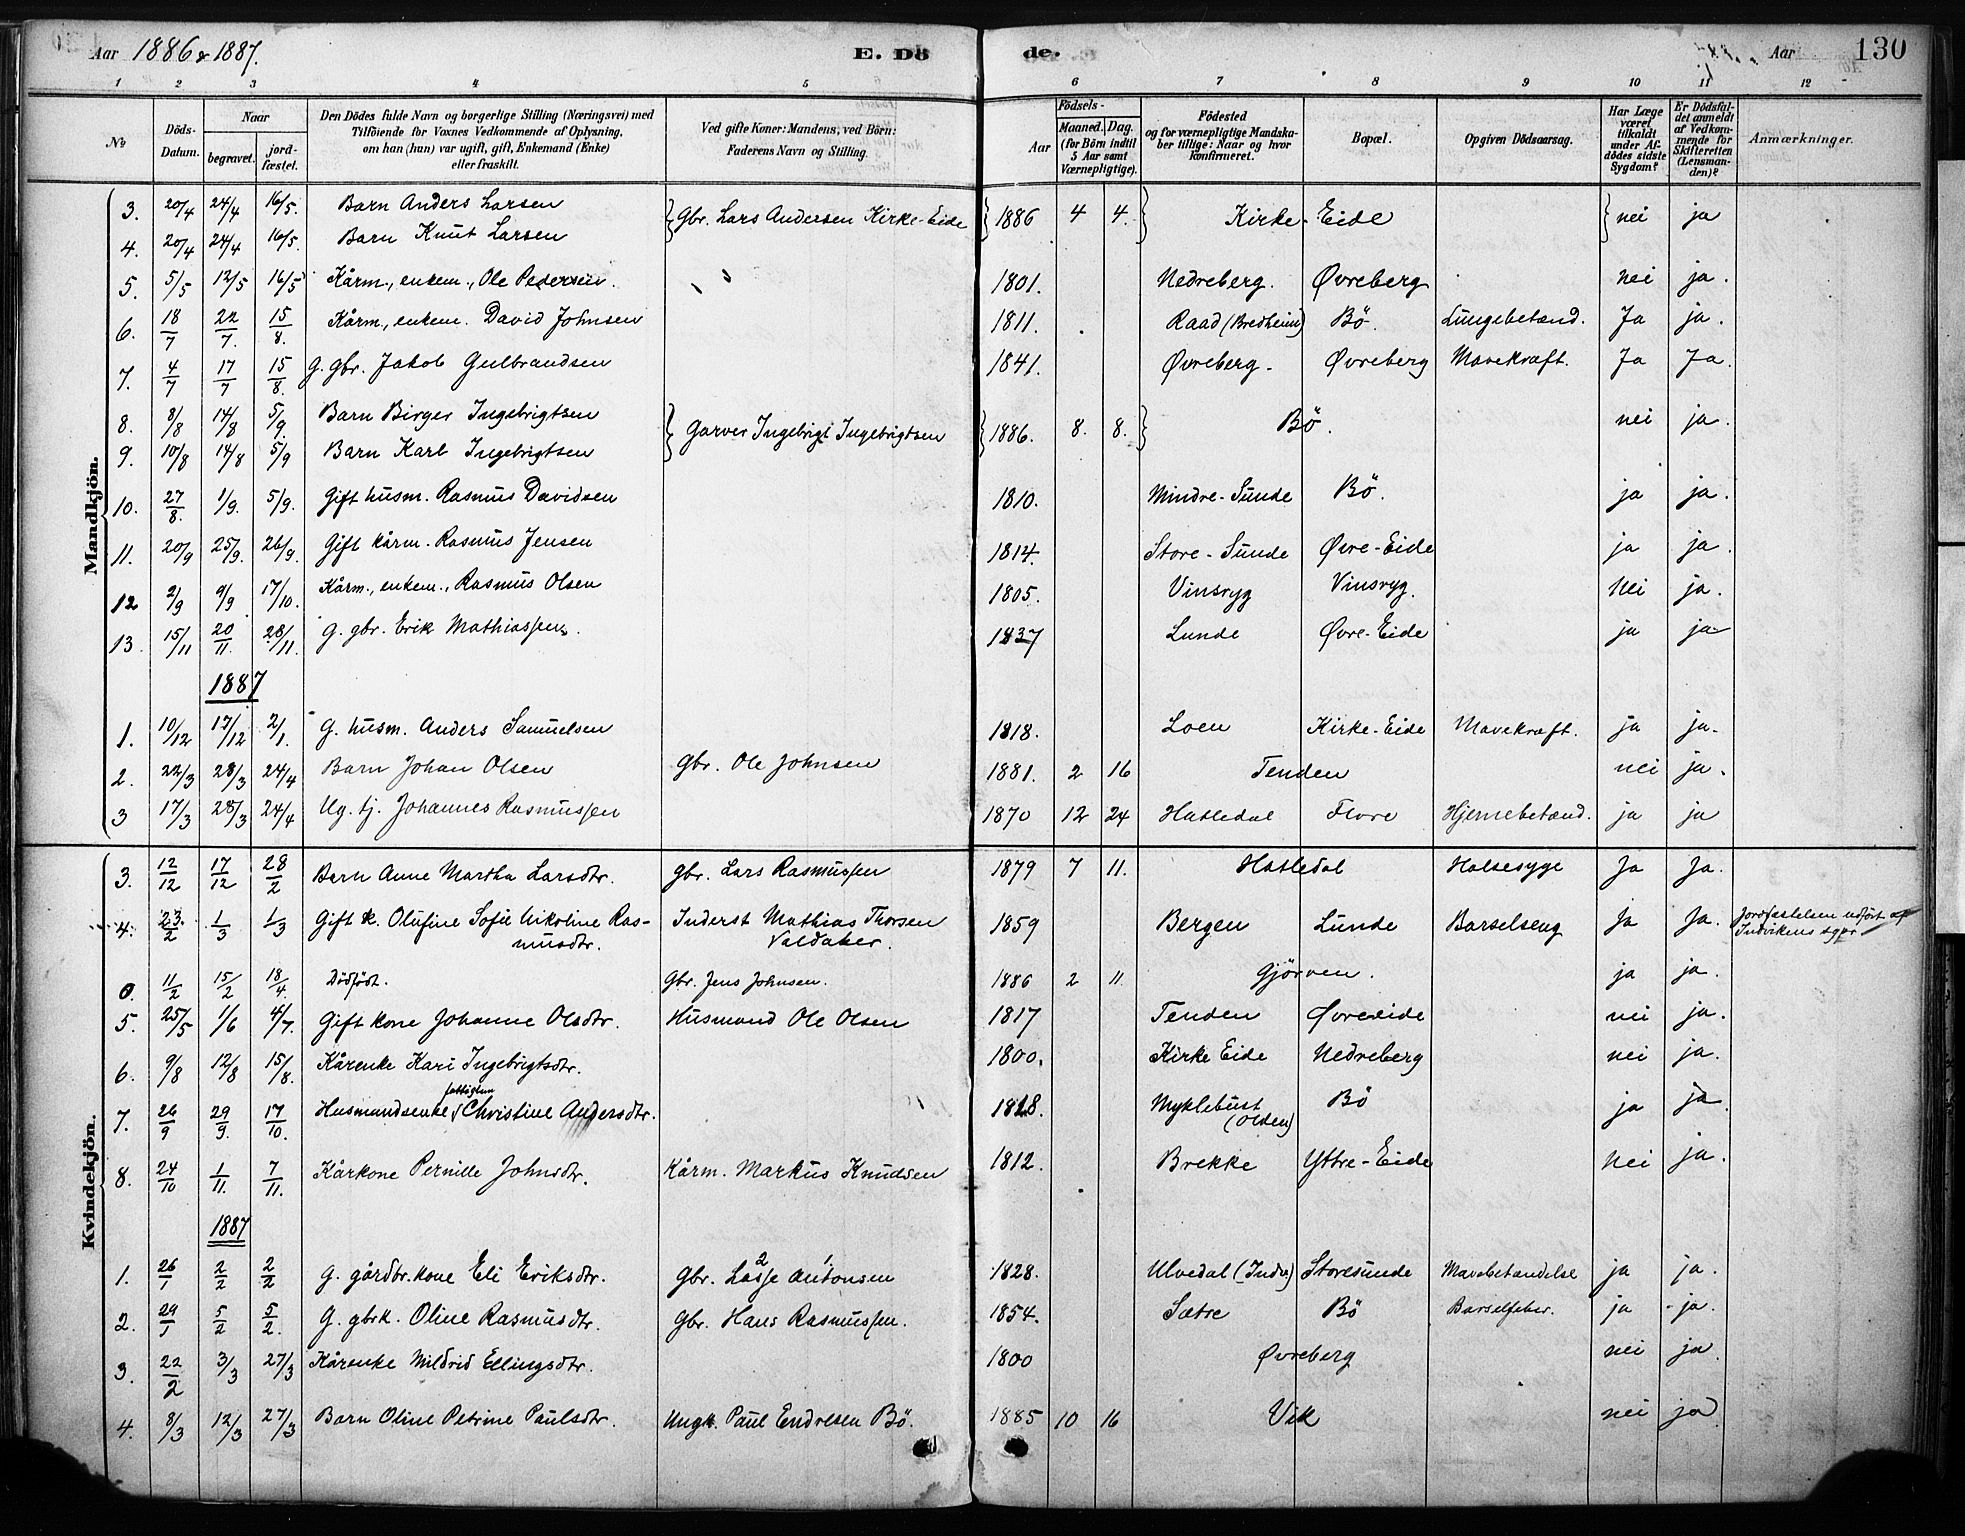 Aar 1886 & 1887. E. Döde. Aar 130
1 2 3 4 5 6 7 8 9 10 11 12
No
Döds-Datum.
Naar
begravet.
jordfæstet.
Den Dödes fulde Navn og borgerlige Stilling (Næringsvei) med
Tilföiende for Voxnes Vedkommende af Oplysning,
om han (hun) var ugift, gift, Enkemand (Enke)
eller fraskilt.
Ved gifte Koner: Mandens, ved Börn:
Faderens Navn og Stilling.
Födsels-
Aar
Maaned. Dag.
(for Börn indtil
5 Aar samt
Værnepligtige).
Födested
og for værnepligtige Mandskaber
tillige: Naar og hvor
konfirmeret.
Bopæl.
Opgiven Dödsaarsag.
Har Læge
været
tilkaldt
under Afdödes
sidste
Sygdom?
Er Dödsfaldet
anmeldt
af Vedkommende
for
Skifteretten
(Lensmanden)?
Anmærkninger.
Mandkjön.
3. 20/4 24/4 16/5. Barn Anders Larsen Gbr. Lars Andersen Kirke-Eide 1886 4 4. Kirke-Eide nei ja
4. 20/4 24/4 16/5. Barn Knut Larsen
5. 5/5 12/5 16/5 Kårm., enkem., Ole Pedersen. 1801. Nedreberg. Øvreberg nei ja.
6. 18/7 22/7. 15/8. Kårm., enkem. David Johnsen 1811. Raad (Bredheim) Bö. Lungebetænd. Ja ja.
7. 4/7 17/7 15/8. G. gbr. Jakob Gulbrandsen 1841. Øvreberg. Øvreberg Mavekræft. Ja Ja
8. 8/8 14/8 5/9 Barn Birger Ingebrigtsen Garver Ingebrigt Ingebrigtsen 1886. 8. 8. Bö. nei ja.
9. 10/8 14/8 5/9 Barn Karl Ingebrigtsen
10. 27/8. 1/9. 5/9. Gift husm. Rasmus Davidsen 1810. Mindre-Sunde Bö. ja ja.
11. 20/9 25/9. 26/9. Gift kårm. Rasmus Jensen 1814. Store-Sunde Øvre-Eide ja ja.
12 2/9 9/9 17/10. Kårm., enkem., Rasmus Olsen 1805. Vinsryg Vinsryg. Nei ja.
13. 15/11 20/11 28/11. G. gbr. Erik Mathiassen. 1837 Lunde Øvre-Eide ja ja
1887
1. 10/12 17/12 2/1. G. husm. Anders Samuelsen 1818. Loen Kirke-Eide Mavekræft. ja ja.
2. 22/3 28/3 24/4 Barn Johan Olsen Gbr. Ole Johnsen 1881. 2 16 Tenden nei ja.
3 17/3 28/3 24/4 Ug. tj. Johannes Rasmussen 1870 12 24 Hatledal Flore Hjernebetænd. ja ja
Kvindekjön.
3. 12/12 17/12 28/2 Barn Anne Martha Larsdtr. Gbr. Lars Rasmussen 1879 7 11. Hatledal Halsesyge Ja Ja.
4. 23/2 1/3 1/3 Gift k. Olufine Sofie Nikoline Ras- Inderst Mathias Thorsen 1859 Bergen Lunde Barselseng Ja Ja. Jordfæstelsen udført af
musdtr. Valdaker. Indvikens sgpr
0. 11/2 15/2 18/4. Dödfödt. Gbr. Jens Johnsen. 1886 2 11. Gjörven. ja ja.
5. 25/5 1/6 4/7. Gift kone Johanne Olsdtr. Husmand Ole Olsen 1817 Tenden Øvreeide nei ja.
6. 9/8 12/8 15/8. Kårenke Kari Ingebrigtsdtr. 1800. Kirke Eide Nedreberg nei ja.
fattiglem
7. 26/9 29/9. 17/10. Husmandsenke Christine Andersdtr. 1818. Myklebust Bö ja ja.
(Olden)
8. 24/10 1/11. 7/11. Kårkone Pernille Johnsdtr. Kårm. Markus Knudsen 1812. Brekke Yttre-Eide nei ja.
1887
1. 26/1 2/2 2/2 G. gårdbr. kone Eli Eriksdtr. Gbr. Lasse Antonsen 1828. Ulvedal (Indv.) Storesunde Mavebetændelse ja ja.
2. 29/1 5/2 5/2. G. gbrk. Oline Rasmusdtr. Gbr. Hans Rasmussen. 1854. Sætre Bö Barselfeber. ja ja.
3. 22/2 3/3 27/3 Kårenke Mildrid Ellingsdtr. 1800 Øvreberg nei ja.
4. 8/3 12/3 27/3 Barn Oline Petrine Paulsdtr. Ungk. Paul Endresen Bö. 1885 10 16 Vik nei ja.